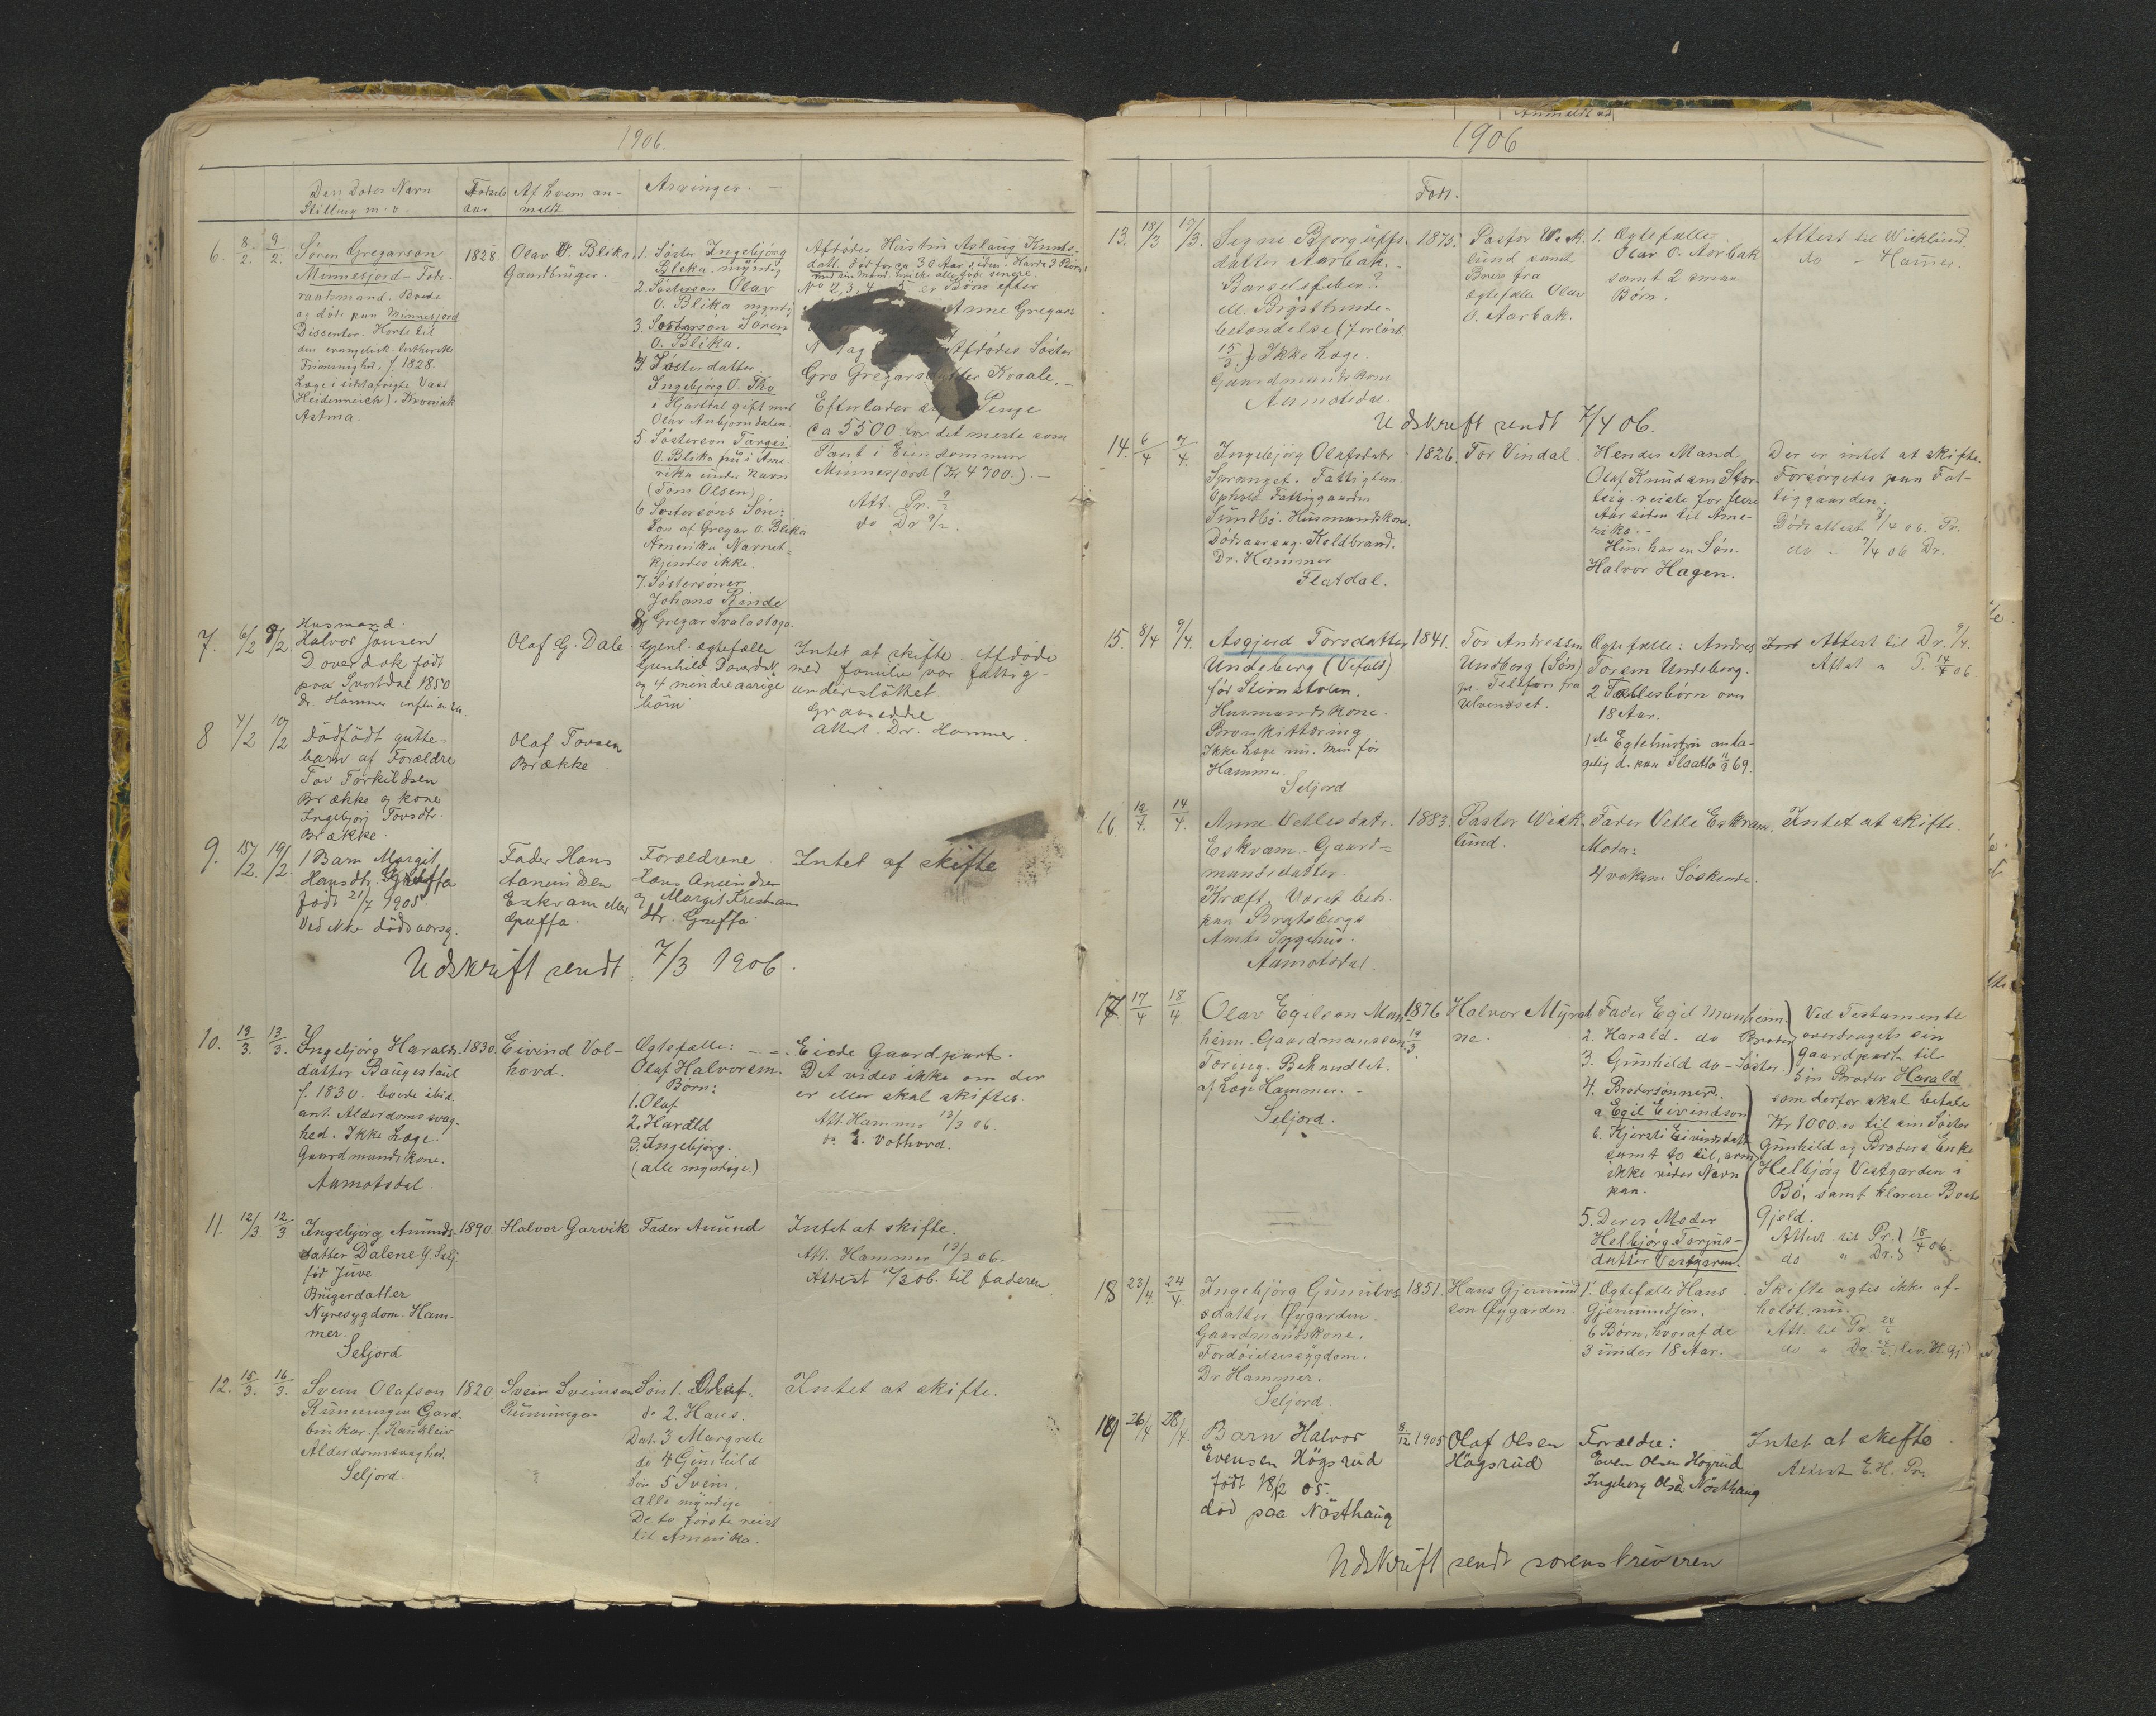 1906.
Den Dødes Navn
Stilling m. v.
Fødsels
aar
Af hvem an-
meldt
Arvinger. -
6. 8/2. 9/2.
Søren Gregarson
Minnesjord - Fode-
raadsmand. Boede
og døde paa Minnesjord
Dissenter. Hørte til
den evangelisk-lutherske
Frimenighed, f. 1828.
Læge i sidst afvigte Vaar
(Heidenreich). Kronisk
Astma.
1828.
Olav O. Blika,
Gaardbruger.
1. Søster Ingebjørg
Bleka. myndig
2. Søsterson Olav
O. Blika myndig
3. Søsterson Søren
O. Blika.
4. Søsterdatter
Ingebjørg O. Tho
i Hjartdal gift med
Olav Anbjonndalen.
5. Søsterson Targei
O. Blika nu i Ame-
rika under Navn
(Tom Olsen)
6 Søstersøns Søn:
Søn af Gregar O. Blika
Amerika Navnet
kjendes ikke.
7. Søstersønner
Johans Rinde
8 Gregar Svalastoga.
Afdødes Hustru Aslaug Knuts-
datt. død for ca 30 Aar siden. Havde 3 Børn
No 2, 3, 4, 5 er Børn efter
Anne Gregars
Afdødes Søster
Gro Gregarsdatter Kvaale. -
Efterlader sig Penge
ca 5500 hvor det meste som
Pant i Eiendommen
Minnesjord (Kr 4700.). -
Att. Pr. 9/2
do Dr 9/2.
7. 6/2 9/2.
Husmand
Halvor Jonsen
Doverdok født
paa Svortdal 1850
dr. Hammer
Olaf G. Dale
Gjenl. ægtefælle
Gunhild Doverdok
og 4 mindreaarige
børn
Intet at skifte Afdøde
med familie var fattig-
understøttet.
Graveddie
Attest. Dr. Hammer.
8 7/2 10/2
Dødfødt gutte-
barn af Forældre
Tov Torkildsen
Brække og kone
Ingebjørj Tovsdtr.
Brække.
Olaf Tovsen
Brække
9. 15/2. 19/2.
1 Barn Margit
Hansdtr. Grusffa
født 21/7 1905.
Ved ikke dødsaarsg.
Fader Hans
Aanundsen
Eskvam eller
Gruffa.
Forældrene
Hans Anundsen
og Margit Kristians
dtr. Gruffa
Intet af skifte
Udskrift sendt 7/3 1906.
10. 13/3. 13/3.
Ingebjørg Haralds-
datter Baugestaul
f. 1830. boede ibid.
ant. Alderdomssvag-
hed. Ikke Læge.
Gaardmandskone.
Aamotsdal.
1830.
Eivind Vol-
hovd.
Ægtefælle: - -
Olaf Halvorsen.
Børn:
1. Olaf
2. Harald
3. Ingebjørg.
(alle myndige.)
Eiede Gaardpart.
Det vides ikke om der
er eller skal skiftes.
Att. Hammer 13/3 06.
do E. Volhovd.
11. 12/3. 12/3
Ingebjørg Amunds-
datter Dalene y. Selj.
fød Juve
Brugerdatter
Nyresygdom. Ham-
mer.
Seljord
1890.
Halvor Garvik
Fader Amund
Intet at skifte.
Att. Hammer 12/3 06.
Attest 12/3 06. til faderen
12. 15/3. 16/3.
Svein Olafson
Rünningen Gard.
brukar. f. Rauhleiv
Alderdomssvaghed.
Seljord.
1820.
Svein Sveinson
Rünningen
Søn 1. Olaf.
do 2. Hans.
Dat. 3 Margrete
do 4 Günhild
Søn 5 Svein.
alle myndige
De to første reist
til Amerika.
Intet at skifte.
Anmeldt ad
1906
Født.
13. 18/3 19/3.
Signe Bjorgulfs-
datter Aarbak. -
Barselsfeber?
ell. Brystbinde-
betændelse (forløst
15/3) Ikke Læge.
Gaardmandskone
Aamotsdal.
1875.
Pastor Wick-
lund samt
Brev fra
Ægtefælle Olav
O. Aarbak.
1. Ægtefælle
Olav O. Aarbak
samt 2 smaa
Børn.
Attest til Wicklund.
do - Hamer.
Udskrift sendt 7/4 06.
14. 6/4 7/4.
Ingebjörg Olafsdatr
Spranget. Fattiglem.
Ophold Fattiggaarden
Sundbø. Husmandskone.
Dødsaarsag. Koldbrand.
Dr. Hammer
Flatdal.
1826.
Tor Vindal.
Hendes Mand
Olaf Knudsen Stor-
teig reiste for flere
Aar siden til Ame-
rika. -
Hun har en Søn.
Halvor Hagen.
Der er intet at skifte.
Forsørgedes paa Fat-
tiggaarden.
Dødsattest 7/4 06. Pr.
do - 7/4 06 Dr.
15. 8/4 9/4.
Asgjerd Torsdatter
Undeberg (Vefald)
før Stirnstolen.
Husmandskone.
Bronkittæring
Ikke Læge nu. Men før
Hammer.
Seljord
1841.
Tor Andressen
Undberg (Søn)
pr. Telefon fra
Ulvenæset.
Ægtefælle: Andres
Torsen Undeberg.
2 Fællesbørn over
18 Aar.
1ste Egtehustru anta-
gelig d. paa Flaatto 11/9 69.
Attest til Dr. 9/4.
Attest " P. 14/4 06.
16. 12/4. 14/4.
Anne Vetlesdatr.
Eskvam - Gaard-
mandsdatter.
Kræft. Været beh.
paa Bratsbergs
Amts Sygehus.
Aamotsdal.
1883.
Pastor Wick-
lund.
Fader Vetle Eskvam.
Moder:
4 voksne Søskende.
Intet at skifte.
17 17/4 18/4.
Olav Egilson Man-
heim - Gaardmandsson.
Tæring. Behandlet
af Læge Hammer. -
Seljord.
1876
19/3.
Halvor Myra-
ne.
1. Fader Egil Manheim
2. Harald - do Broder
3. Gunhild do - Søster.
4. Brodersønner.
a Egil Eivindson
b. Kjersti Eivindsdatt
samt to til, som
ikke vides Navn
paa.
5. Deres Moder
Helbjørg Torjus-
datter Vestgarden.
Ved Testamente
overdraget sin
Gaardpart til
sin Broder Harald
som derfor skal betale
Kr 1000.00 til sin Søster
Gunhild og Broders Enke
Helbjørg Vestgarden i
Bø, samt klarere Boets
Gjeld.
Attest til Pr.
do " Dr. 18/4 06.
18 23/4 24/4.
Ingebjörg Gunulvs
datter Øygarden
Gaardmandskone.
Fordøielsessygdom.
Dr Hammer.
Seljord
1851.
Hans Gjermund
son Øygarden.
1. Ægtefælle Hans
Gjermundsen.
6 Børn, hvoraf de
3 under 18 Aar.
Skifte agtes ikke af-
holdt nu.
Att. til Pr.
do " Dr.
19 26/4 28/4
Barn Halvor
Evensen Högsrud
født 18/12 05.
død paa Nösthaug
8/12 1905
Olaf Olsen
Høgsrud
Forældre:
Even Olsen Høgsrud
Ingeborg Olsd. Nösthaug
Intet at skifte.
Attest E. H. Pr.
Udskrift sendt sorenskriveren